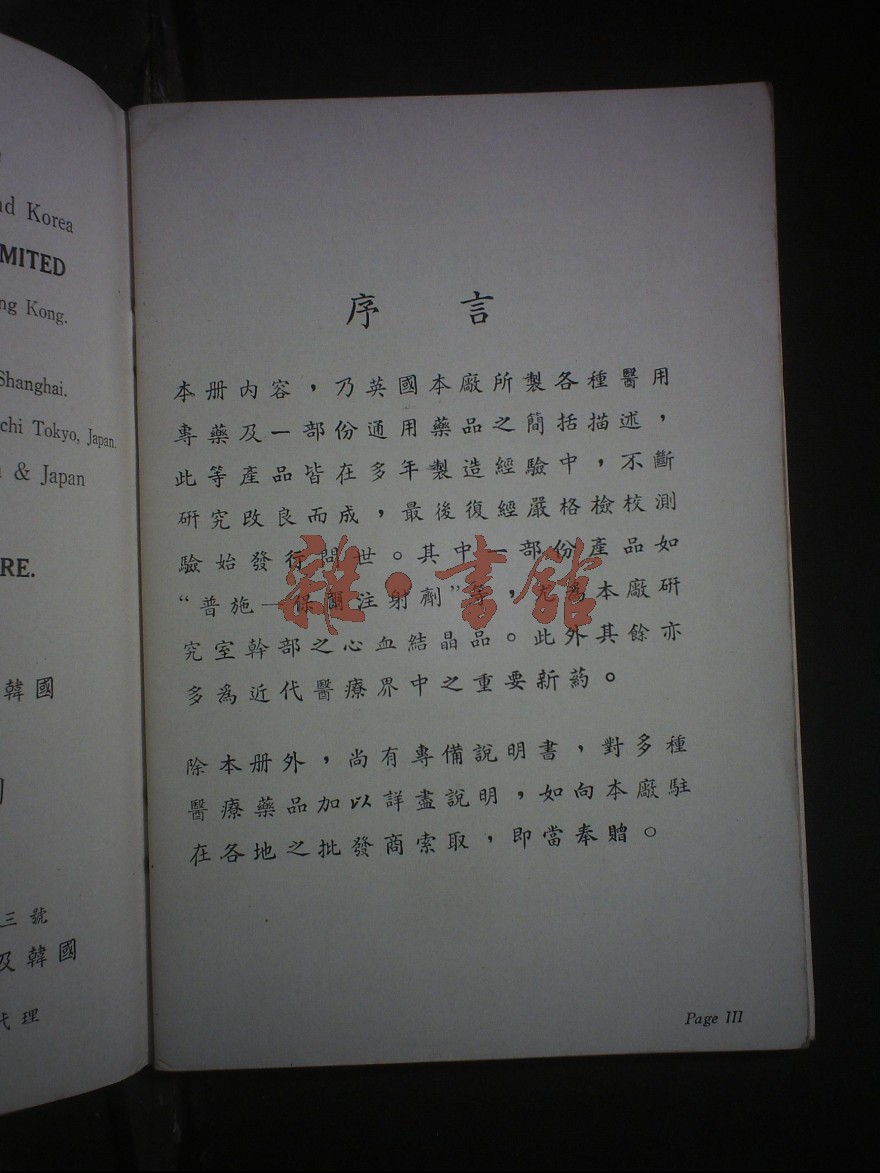 nd Korea
MITED
ng Kong.
Shanghai.
chi Tokyo, Japan.
& Japan
RE.
韓國
三號
及韓國
代理
序言
本册内容，乃英國本廠所製各種醫用
專藥及一部份通用藥品之簡括描述，
此等產品皆在多年製造經驗中，不斷
研究改良而成，最後復經嚴格檢校測
驗始發行問世。其中一部份產品如
“普施—保爾注射劑”等，尤為本廠研
究室幹部之心血結晶品。此外其餘亦
多爲近代醫療界中之重要新葯。
除本册外，尚有專備說明書，對多種
醫療藥品加以詳盡說明，如向本廠駐
在各地之批發商索取，即當奉贈。
Page III
雜·書館